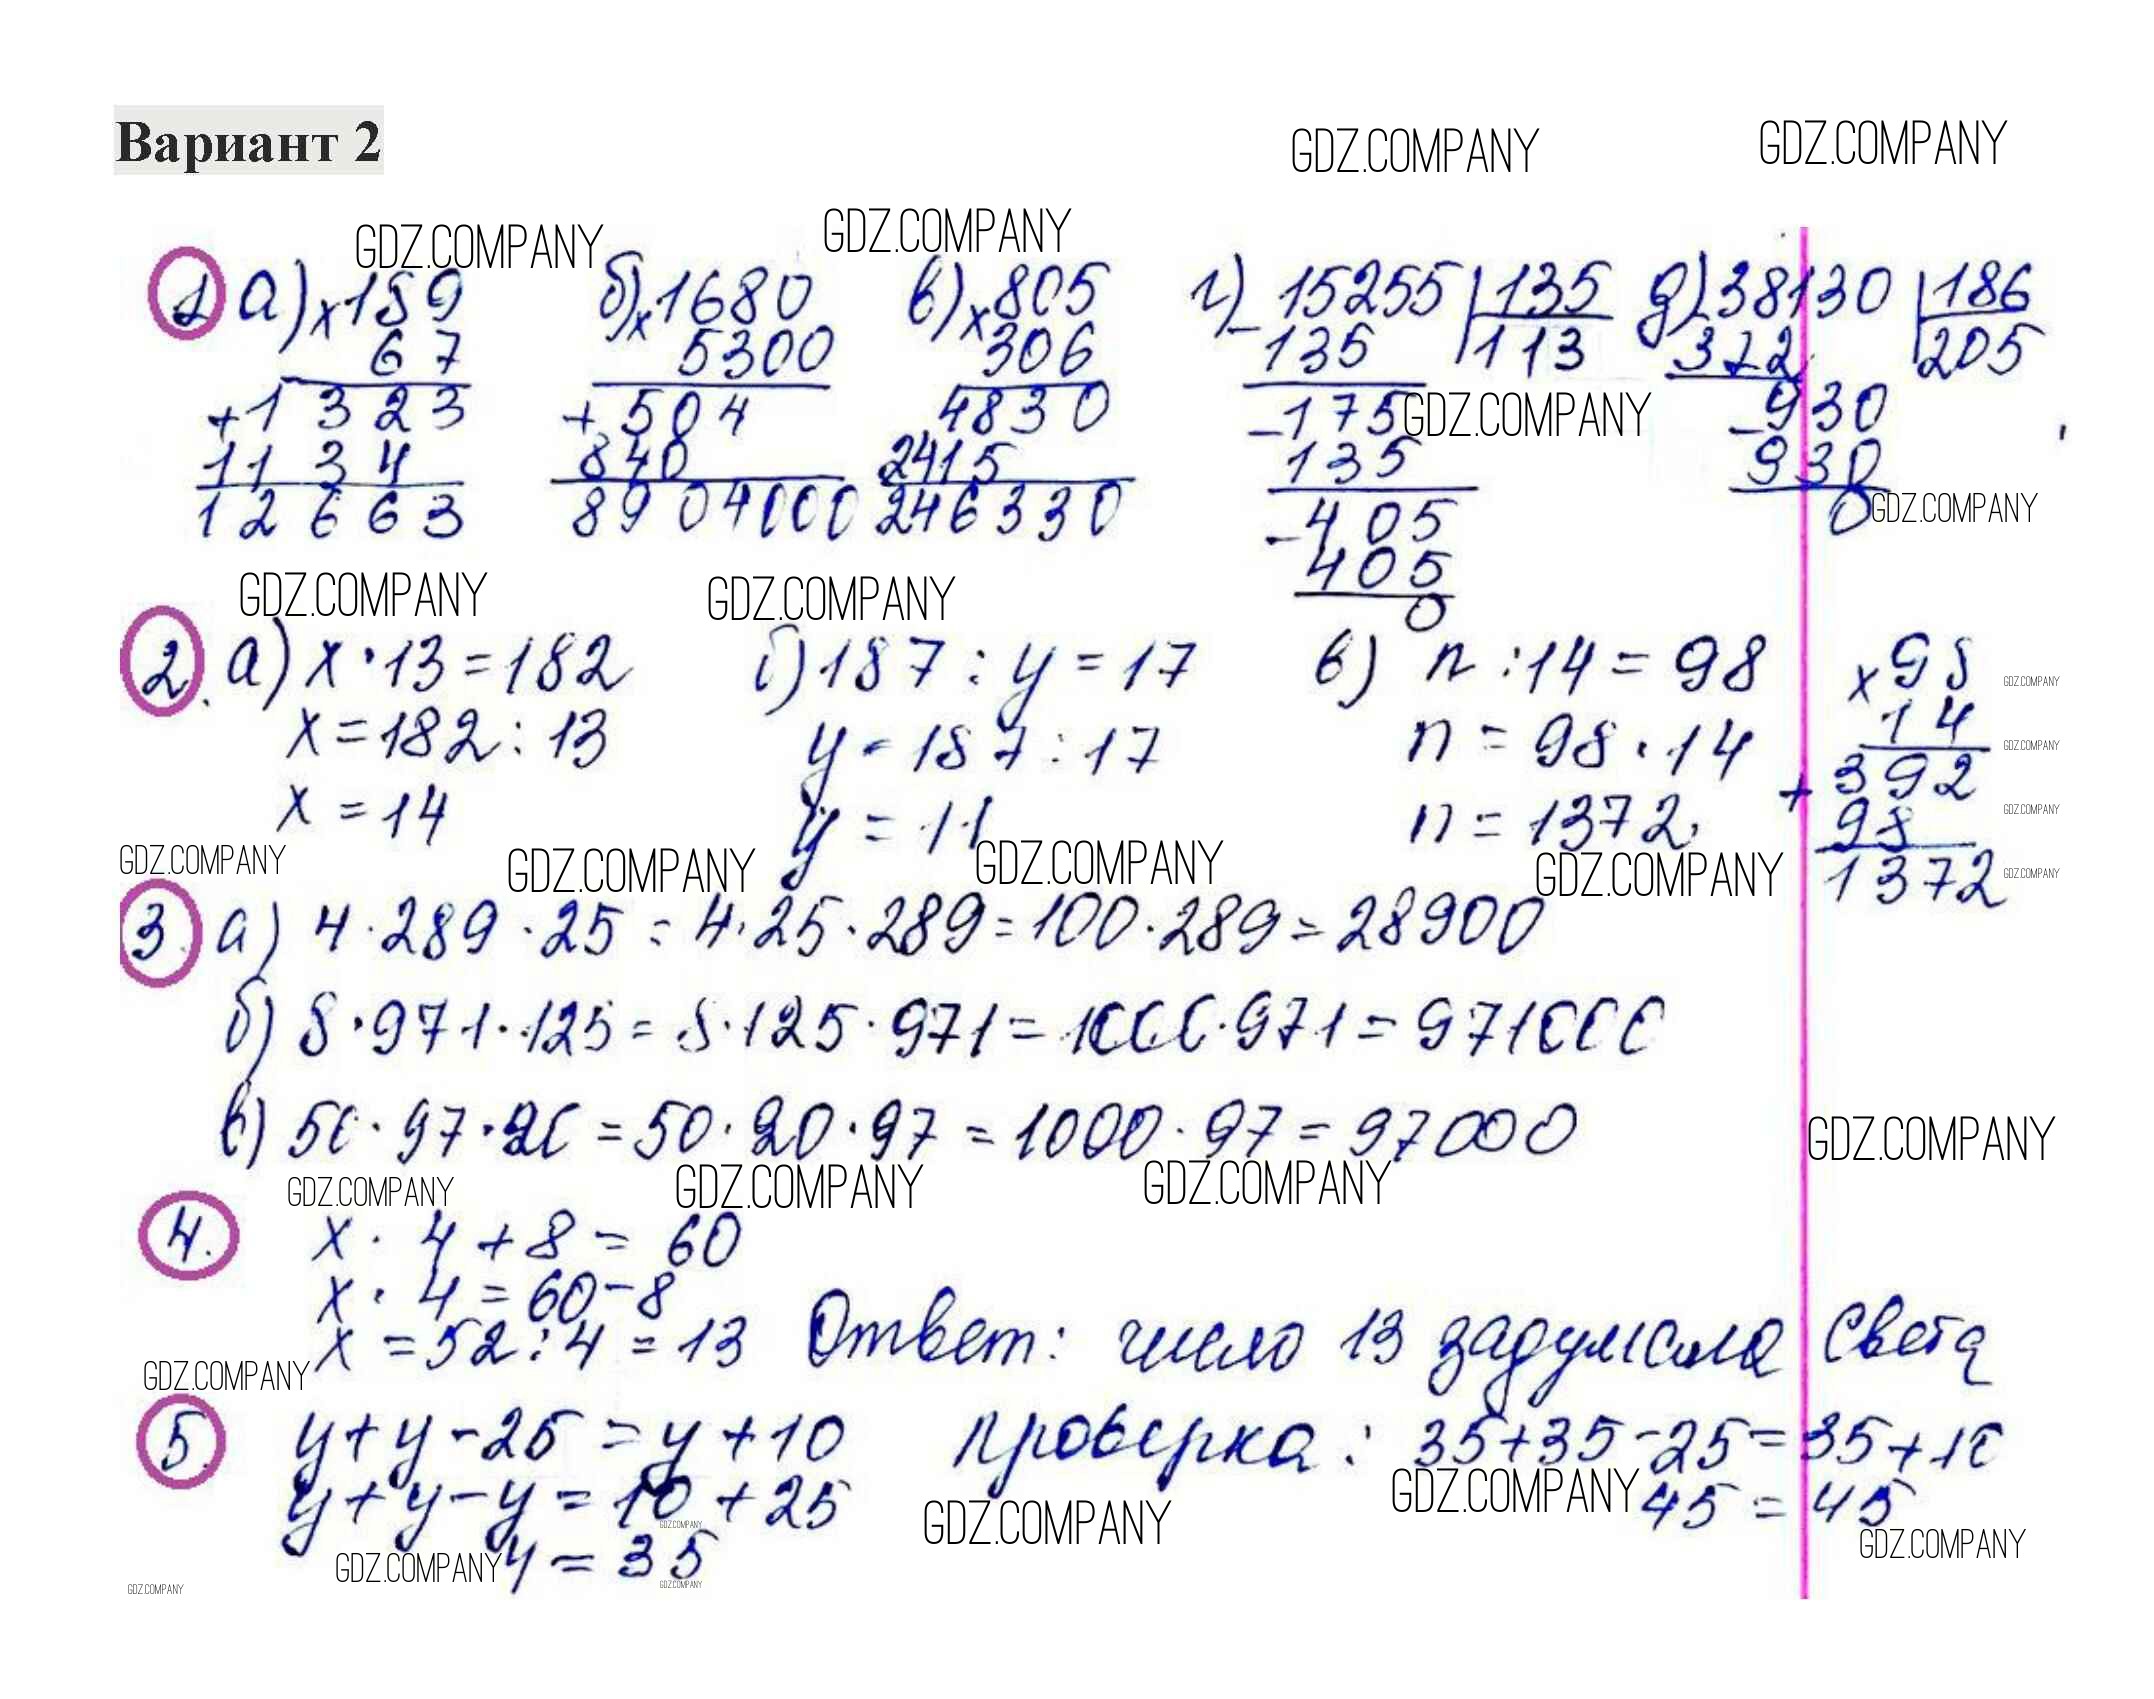 Вариант 2
GDZ.COMPANY GDZ.COMPANY
GDZ.COMPANY GDZ.COMPANY
1 а) x189 б) x1680 в) x805 г) 15255 | 135 д) 38130 | 186
67 5300 306 - 135 | 113 - 372 | 205
+1323 + 504 4830 - 175 GDZ.COMPANY - 930
1134 840 2415 135 930
12663 8904000 246330 - 405 0 GDZ.COMPANY
405
GDZ.COMPANY GDZ.COMPANY 0
2. а) x · 13 = 182 б) 187 : y = 17 в) n : 14 = 98 x 98 GDZ.COMPANY
x = 182 : 13 y = 187 : 17 n = 98 · 14 14 GDZ.COMPANY
x = 14 y = 11 n = 1372. + 392 GDZ.COMPANY
98
GDZ.COMPANY GDZ.COMPANY GDZ.COMPANY GDZ.COMPANY 1372 GDZ.COMPANY
3. а) 4 · 289 · 25 = 4 · 25 · 289 = 100 · 289 = 28900
б) 8 · 971 · 125 = 8 · 125 · 971 = 1000 · 971 = 971000
в) 50 · 97 · 20 = 50 · 20 · 97 = 1000 · 97 = 97000
GDZ.COMPANY
GDZ.COMPANY GDZ.COMPANY GDZ.COMPANY
4. x · 4 + 8 = 60
x · 4 = 60 - 8
x = 52 : 4 = 13 Ответ: число 13 задумала Света
GDZ.COMPANY
5. y + y - 25 = y + 10 проверка: 35 + 35 - 25 = 35 + 10
y + y - y = 10 + 25 GDZ.COMPANY GDZ.COMPANY 45 = 45
GDZ.COMPANY GDZ.COMPANY
GDZ.COMPANY y = 35
GDZ.COMPANY GDZ.COMPANY